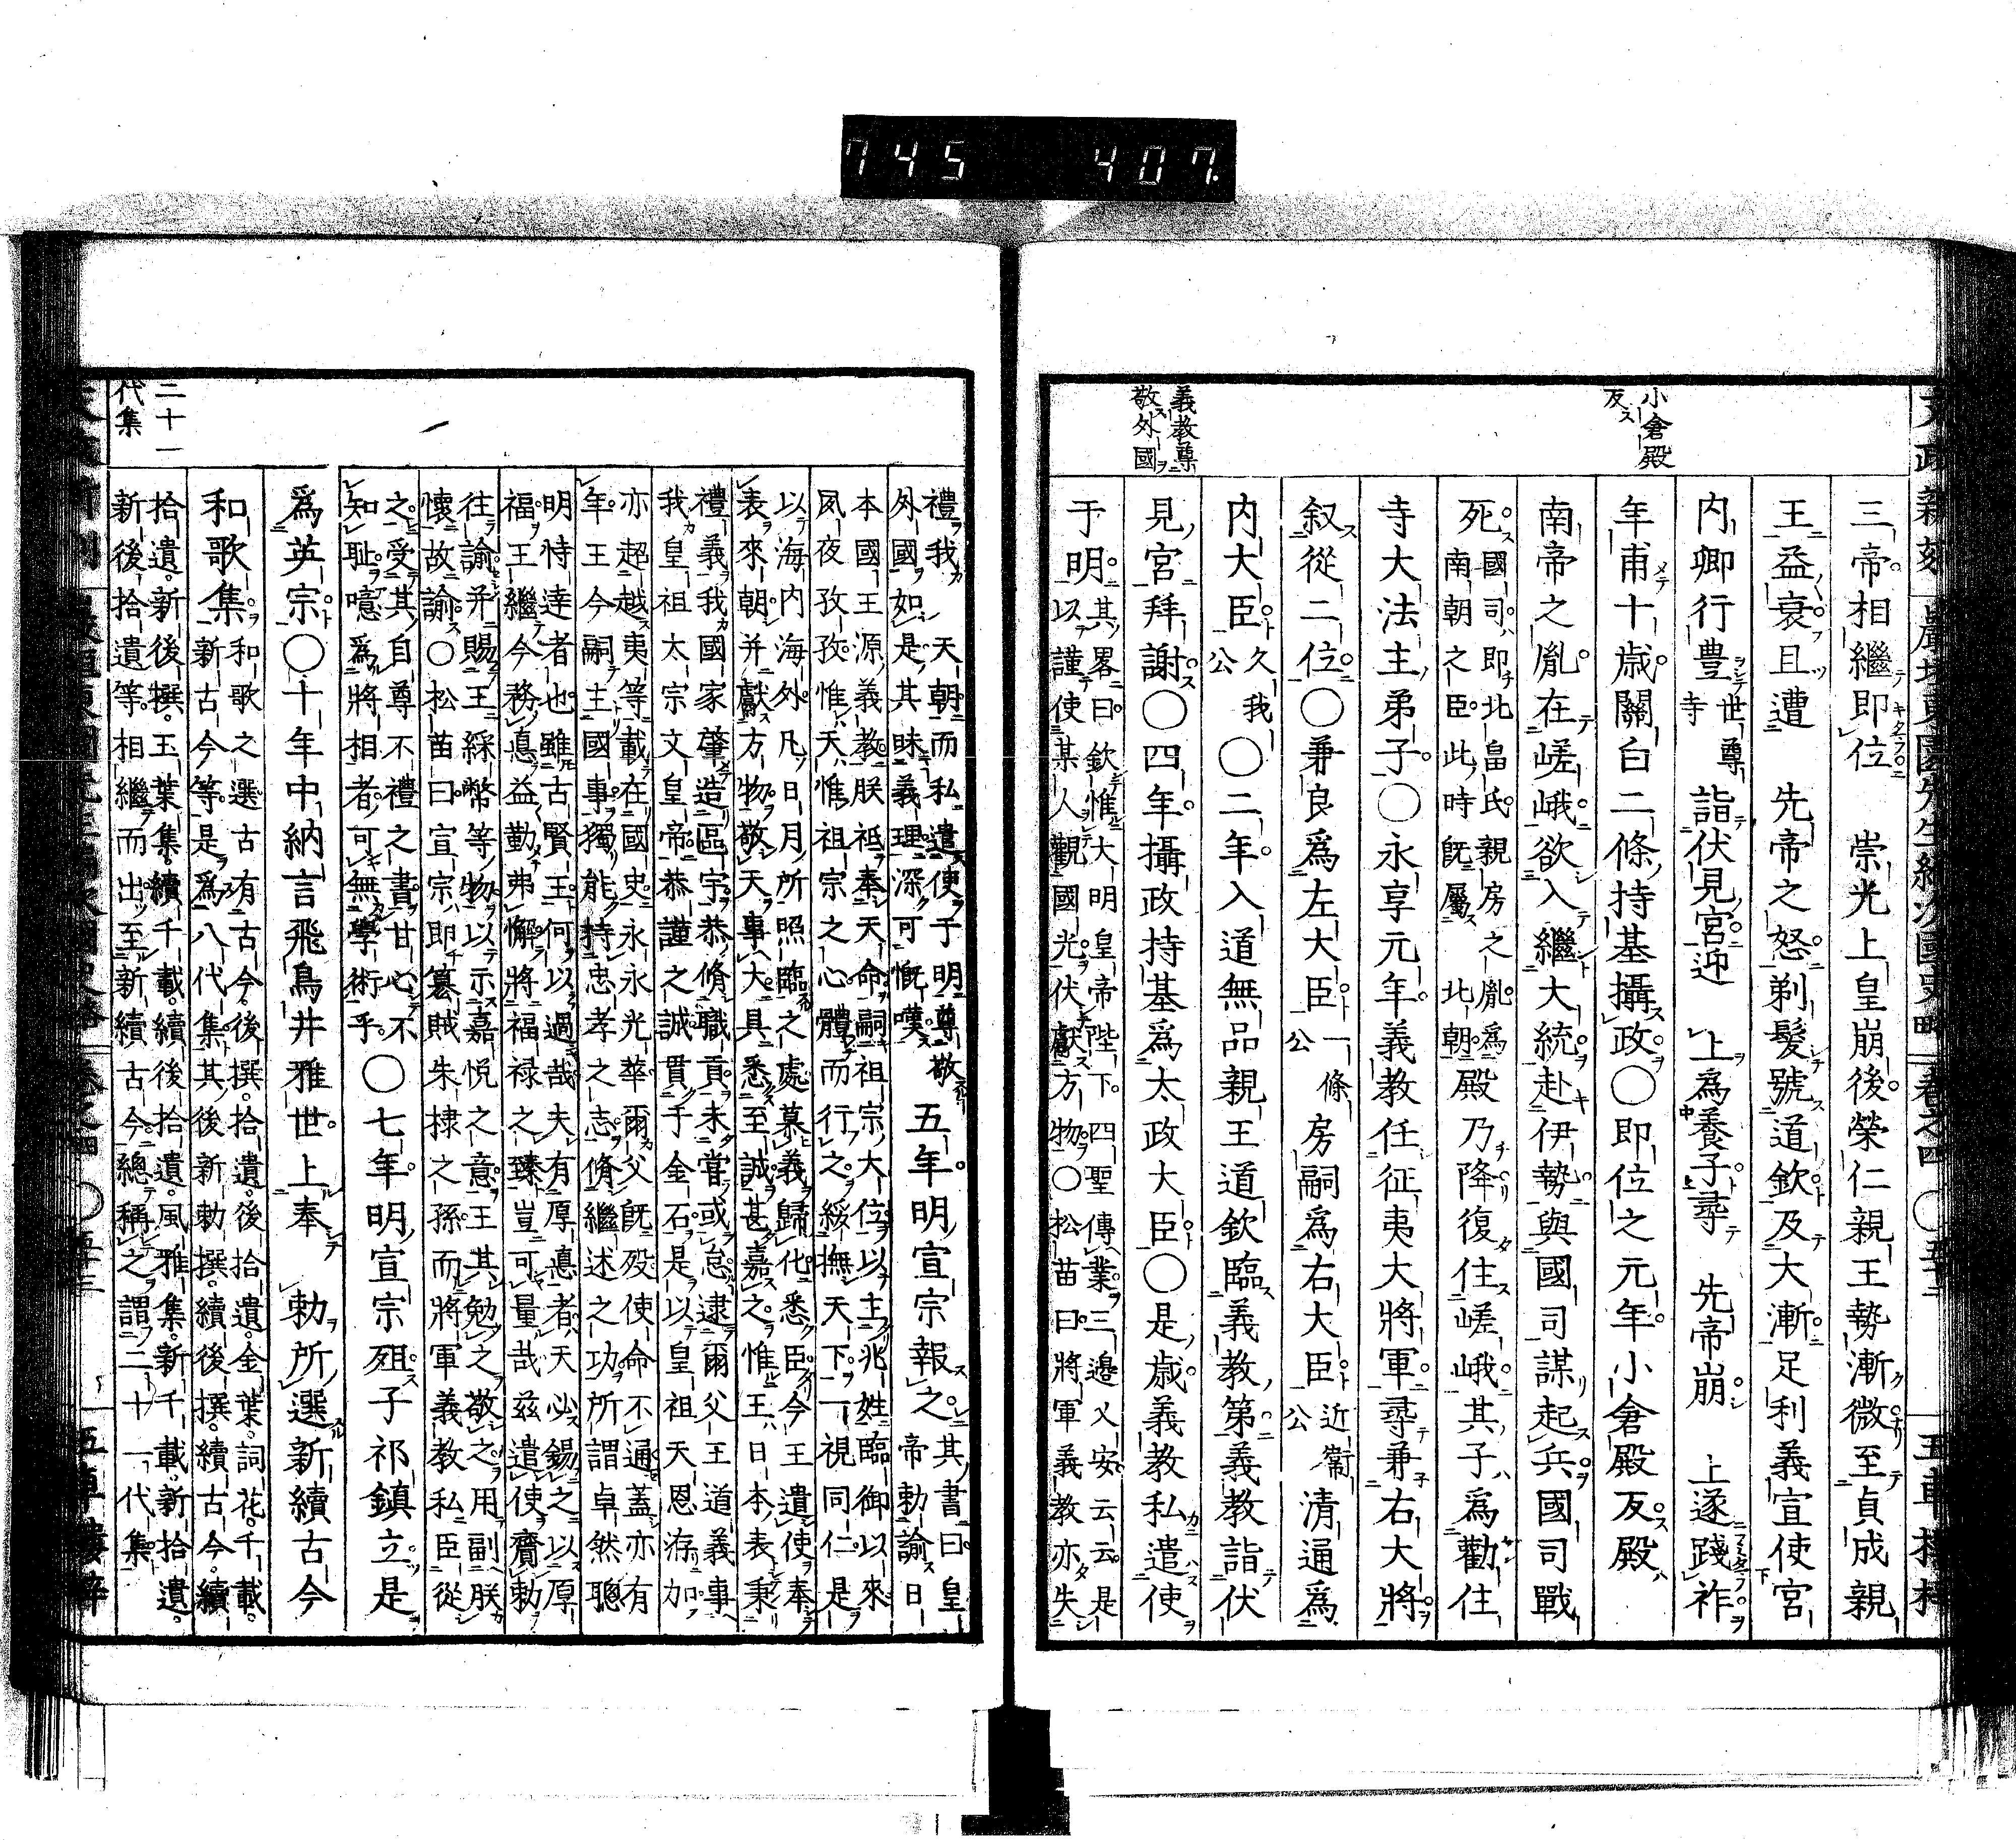 745 407
小倉殿
反
義教尊
敬外國
三帝相繼即位 崇光上皇崩後榮仁親王勢漸微至貞成親
王益衰且遭 先帝之怒剃髮號道欽及大漸足利義宣使宮
内卿行豊世尊寺詣伏見宮迎 上爲養子尋 先帝崩 上遂踐祚
年甫十歳關白二條持基攝政〇即位之元年小倉殿反殿
南帝之胤在嵯峨欲入繼大統赴伊勢與國司謀起兵國司戰
死國司即北畠氏親房之胤爲
南朝之臣此時既屬北朝殿乃降復住嵯峨其子爲勸住
寺大法主弟子〇永享元年義教任征夷大將軍尋兼右大將
叙從二位〇兼良爲左大臣一條公房嗣爲右大臣近衞公清通爲
内大臣久我公〇二年入道無品親王道欽臨義教第義教詣伏
見宮拜謝〇四年攝政持基爲太政大臣〇是歳義教私遣使
于明其畧曰欽惟大明皇帝陛下四聖傳業三邊乂安云云是
以謹使某人觀國光伏獻方物〇松苗曰將軍義教亦失
禮我 天朝而私遣使于明尊敬
外國如是其昧義理深可慨嘆五年明宣宗報之其書曰皇
帝勅諭日
本國王源義教朕祗奉天命嗣祖宗大位以主兆姓臨御以來
夙夜孜孜惟天惟祖宗之心體而行之綏撫天下一視同仁是
以海内海外凡日月所照臨之處慕義歸化悉臣今王遣使奉
表來朝并獻方物敬天事大具悉至誠甚嘉之惟王日本表秉
禮義我國家肇造區宇恭脩職貢未嘗或怠逮爾父王道義事
我皇祖太宗文皇帝恭謹之誠貫于金石是以皇祖天恩洊加
亦超越夷等載在國史永永光華爾父既歿使命不通蓋亦有
年王今嗣主國事獨能持忠孝之志脩繼述之功所謂卓然聰
明恃達者也雖古賢王何以過哉夫有厚悳者天必錫之以厚
福王繼今務悳益勤弗懈將福禄之臻豈可量哉茲遣使齎勅
往諭并賜王綵幣等物以示嘉悦之意王其勉之敬之用副朕
懷故諭〇松苗曰宣宗即簒賊朱棣之孫而將軍義教私臣從
之受其自尊不禮之書甘心不
知耻噫爲將相者可無學術乎〇七年明宣宗殂子祁鎮立是
爲英宗〇十年中納言飛鳥井雅世上奉 勅所選新續古今
和歌集和歌之選古有古今後撰拾遺後拾遺金葉詞花千載
新古今等是爲八代集其後新勅撰續後撰續古今續
拾遺新後撰玉葉集續千載續後拾遺風雅集新千載新拾遺
新後拾遺等相繼而出至新續古今總稱之謂二十一代集
二十一
代集